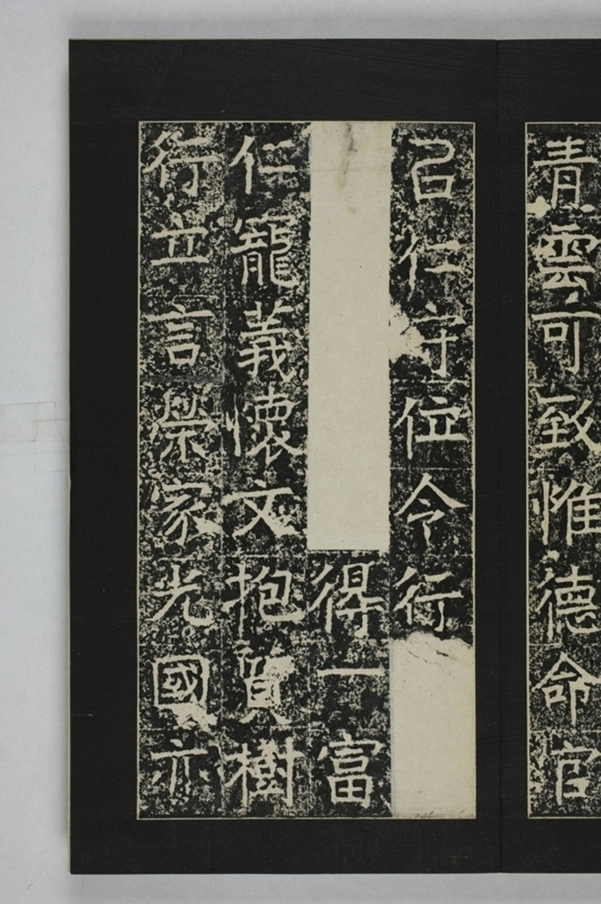 青雲可致惟德命官
召仁守位令行
得一富
仁寵義懷文抱質樹
行立言榮家光國亦